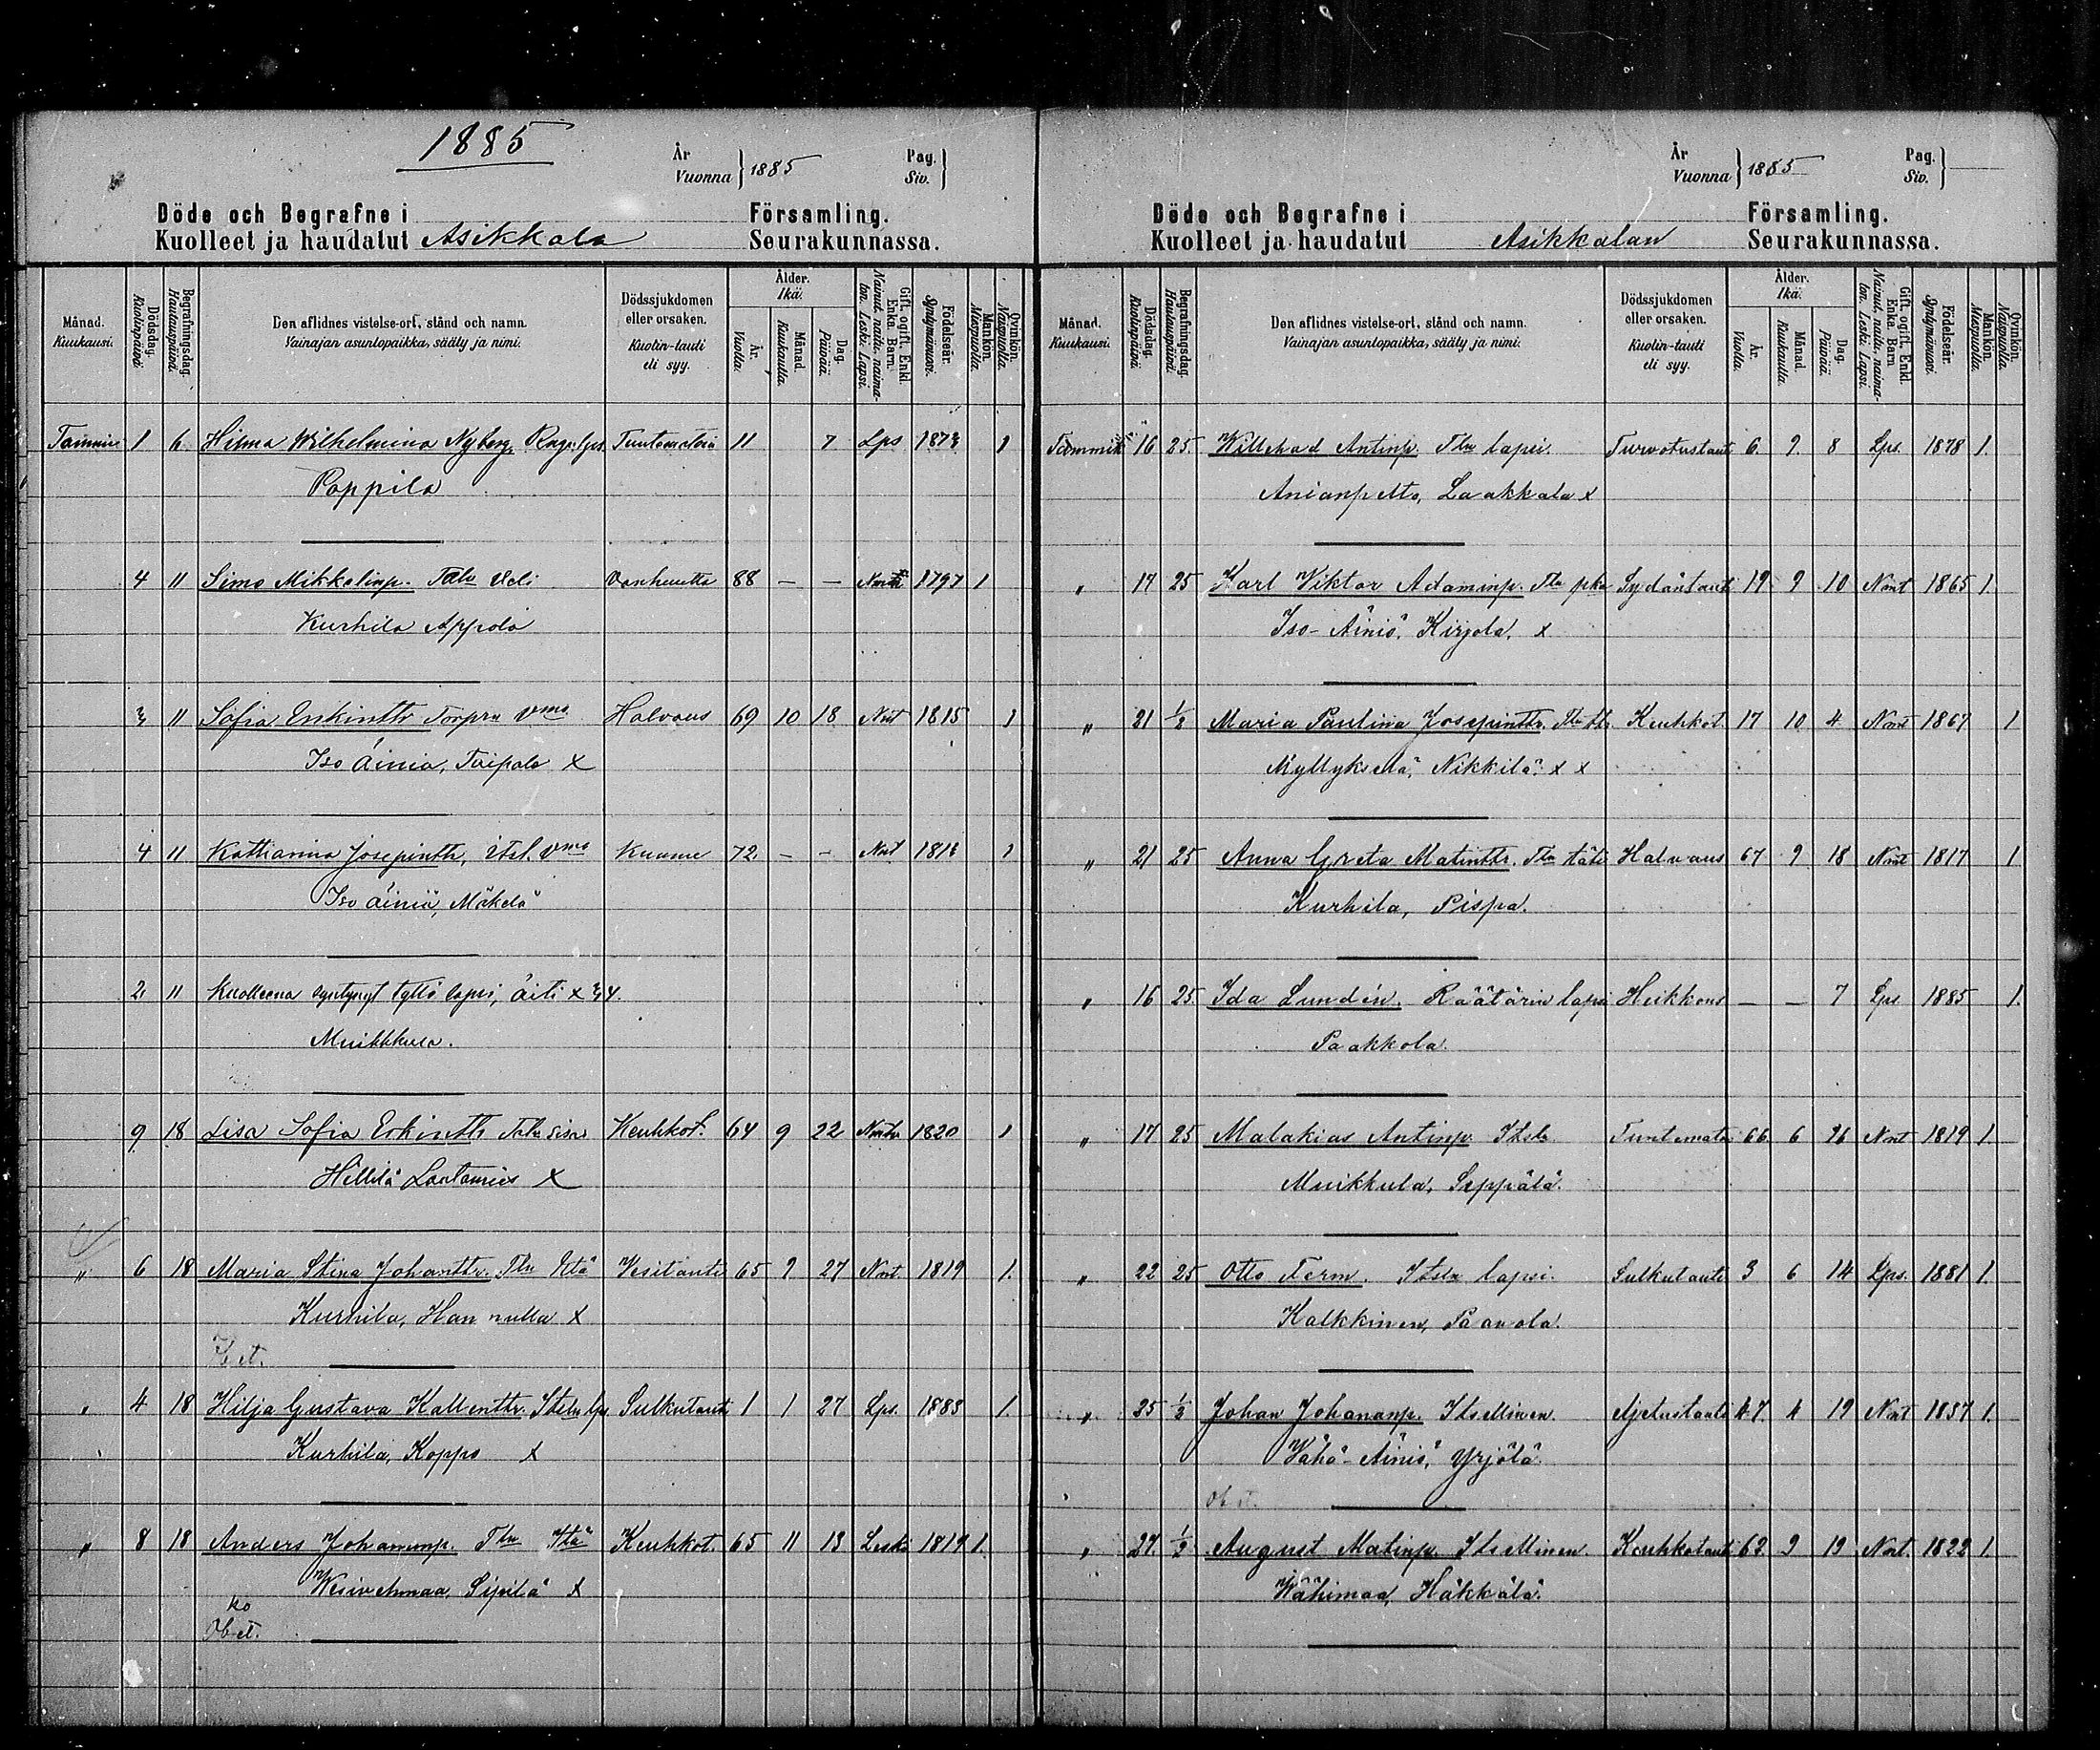 1885
År
Vuonna } 1885
Pag.
Siv. }
Döde och Begrafne i Församling.
Kuolleet ja haudatut Asikkala Seurakunnassa.
Månad. Kuukausi.
Dödsdag. Kuolinpäivä
Begrafningsdag. Hautauspäivä
Den aflidnes vistelse-ort, stånd och namn.
Vainajan asuntopaikka, sääty ja nimi.
Dödssjukdomen eller orsaken.
Kuolin-tauti eli syy.
Ålder. Ikä.
År. Vuotta.
Månad. Kuukautta.
Dag. Päivää.
Gift, ogift, Enkl. Enka. Barn.
Nainut, naitu, naimaton. Leski. Lapsi.
Födelseår. Syntymävuosi.
Mankön. Miespuolia.
Qvinkön. Naispuolia.
1 6 Hilma Wilhelmina Nyberg 11 7 Lps 1873 1
Pappila
4 11 Simo Mikkelinp. Veli Vanhuutta 88 — — 1797 1
Kurhila Appola
3 11 Sofia Erkintr Torpru vmo Halvaus 69 10 18 Nnt 1815 1
Iso Äiniö, Taipale x
4 11 Katharina Josepintr, Itsl. vmo Kuume 72 — — Nnt 1 1
Iso Äiniö, Mäkelä
2 11 Kuolleena syntynyt tyttö lapsi, äiti x 34.
Muikkula.
9 18 Lisa Sofia Erkintr Keuhkot. 64 9 22 1820 1
Hillilä Lautamies x
" 6 18 Maria Stina Johantr. Tln Vesitauti 65 9 27 Nnt 1819 1.
Kurhila, Hannulla x
" 4 18 Hilja Gustava Kallentr. Itsln lps. Sulkutauti 1 1 27 Lps. 1883 1.
Kurhila, Koppo x
" 8 18 Anders Johananp. Tln Keuhkot. 65 11 13 Leski 1819 1.
Wesivehmaa, Sipilä x
Ob et.
År
Vuonna } 1885
Pag.
Siv. } —
Döde och Begrafne i Församling.
Kuolleet ja haudatut Asikkalan Seurakunnassa.
Månad. Kuukausi.
Dödsdag. Kuolinpäivä
Begrafningsdag. Hautauspäivä
Den aflidnes vistelse-ort, stånd och namn.
Vainajan asuntopaikka, sääty ja nimi.
Dödssjukdomen eller orsaken.
Kuolin-tauti eli syy.
Ålder. Ikä.
År. Vuotta.
Månad. Kuukautta.
Dag. Päivää.
Gift, ogift, Enkl. Enka. Barn
Nainut, naitu, naimaton. Leski. Lapsi.
Födelseår. Syntymävuosi.
Mankön. Miespuolia.
Qvinkön. Naispuolia.
Tammik 16 25. Willehad Antinp. Tln lapsi. Turvotustauti 6. 9. 8 Lps. 1878 1.
Anianpelto, Laakkola x
" 17 25 Karl Wiktor Adaminp. Tln pka Sydäntauti 19 9 10 Nmt 1865 1.
Iso-Äiniö, Kirjola. x
" 21 1/2 Maria Paulina Josepinttr. Tln Keuhkot. 17 10 4 Nmt 1867 1
Myllykselä, Nikkilä x x
" 21 25 Anna Greta Matinttr. Tln täti Halvaus 67 9 18 Nmt 1817 1
Kurhila, Pispa.
" 16 25. Ida Lundén. Räätärin lapsi Heikkous — — 7 Lps 1885 1.
Paakkola.
" 17 25 Malakias Antinp. Itsln Tuntematon 66. 6 26 Nnt 1819 1.
Muikkula, Seppälä.
" 22 25 Otto Ferm. Itsln lapsi. Sulkutauti 3 6 14 Lps. 1881 1.
Kalkkinen, Paavola.
" 25 1/2 Johan Johananp. Itsellinen. Ajetustauti 47. 4 19 Nnt 1837 1.
Vähä-Äiniö, Yrjölä.
" 27. 1/2 August Matinp. Itsellinen. Keuhkotauti 62. 9 19 Nnt. 1822 1.
Wähimaa, Häkkälä.